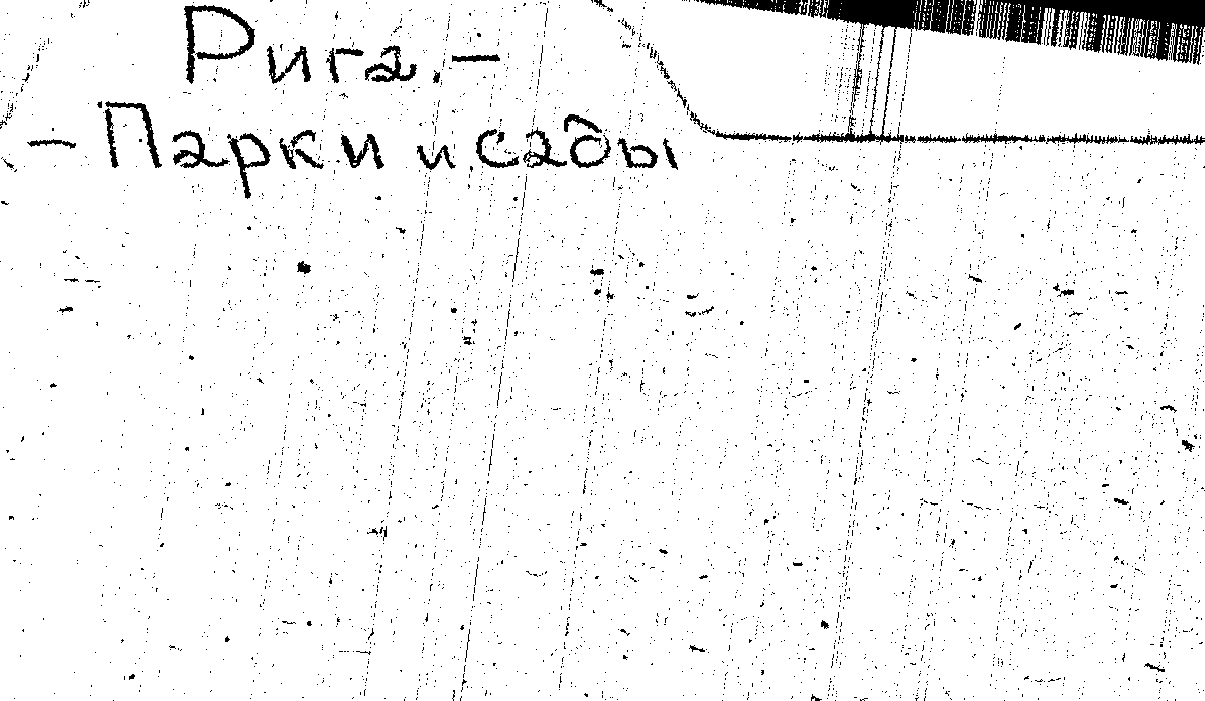 Рига. –
– Парки и сады